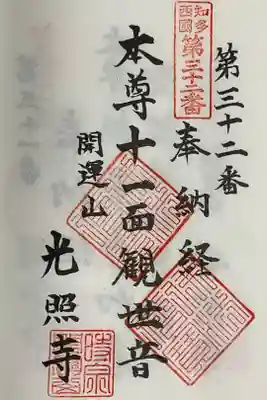 第三十二番
知多
西國
第三十二番
奉納経
本尊十一面觀世音
開運山
光照寺